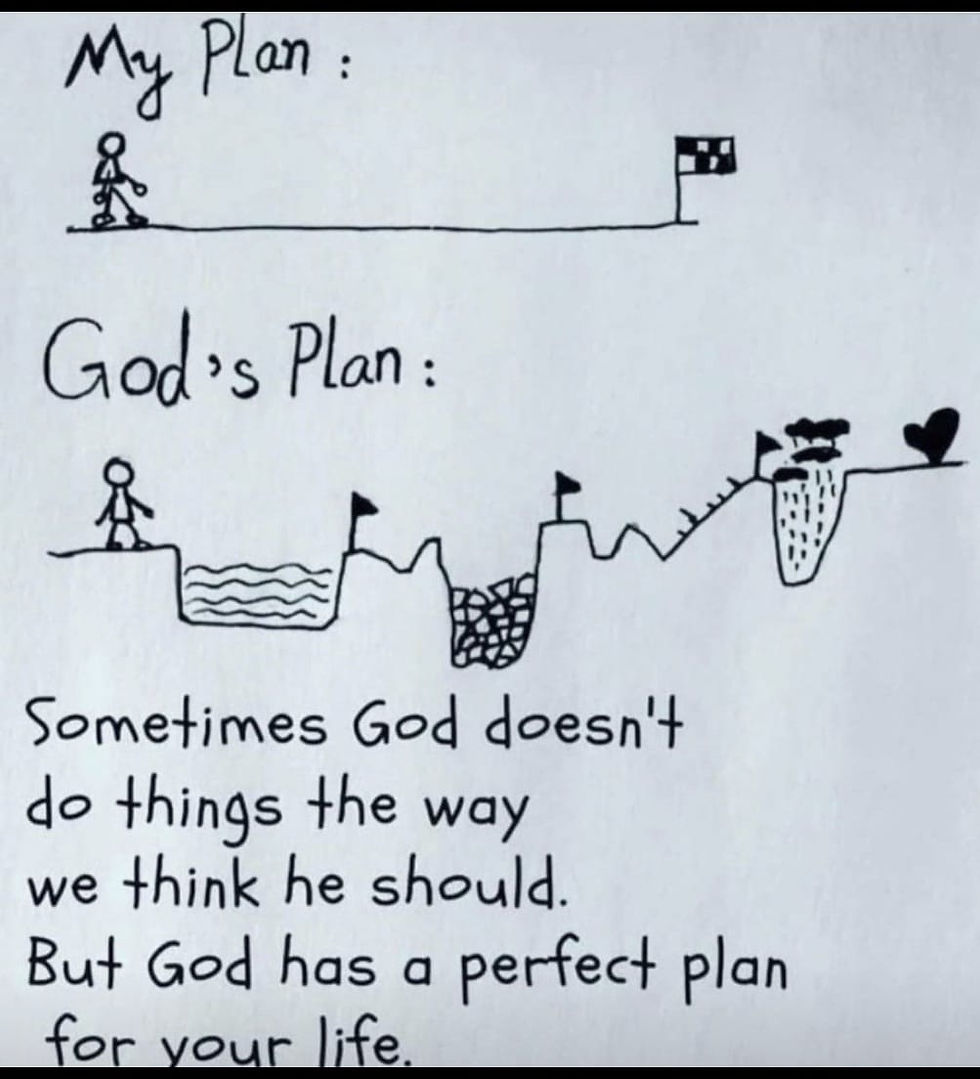 My Plan :
God's Plan :
Sometimes God doesn't
do things the way
we think he should.
But God has a perfect plan
for your life.